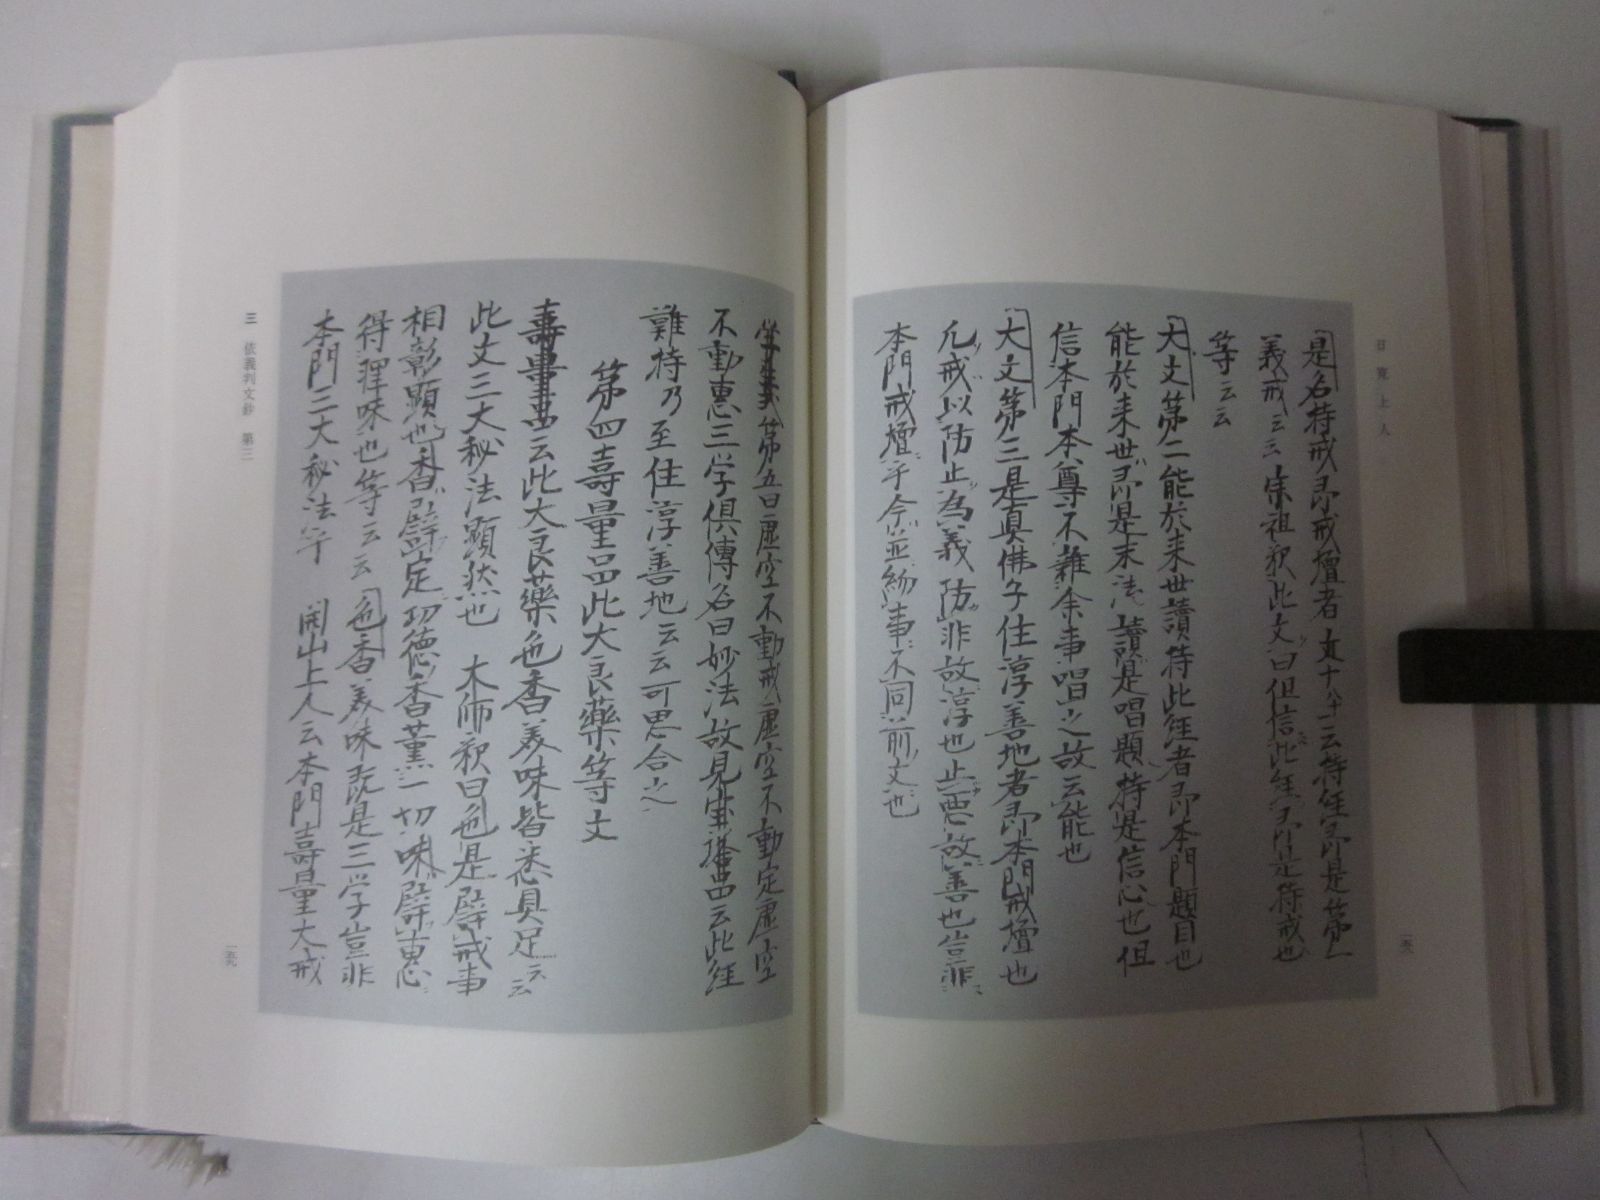 日寛上人
是名持戒即戒壇者文十八十一云持経即是第一
義戒云云宗祖釈此文曰但信此経即是持戒也
等云云
大文第二能於来世讀持此経者即本門題目也
能於来世即是末法讀是唱題持是信心也但
信本門本尊不雑余事唱之故云能也
大文第三是真佛子住淳善地者即本門戒壇也
凡戒以防止為義防非故淳也止悪故善也豈非
本門戒壇乎今並於事不同前文也
一五八
第五曰虚空不動戒虚空不動定虚空
不動恵三学倶傳名曰妙法故見宝塔品云此経
難持乃至住淳善地云云可思合之
第四壽量品此大良薬等文
壽量品云此大良薬色香美味皆悉具足云云
此文三大秘法顕然也 大師釈曰色是譬戒事
相彰顕也香譬定功徳香薫一切味譬恵
得理味也等云云色香美味既是三学豈非
本門三大秘法乎 開山上人云本門壽量大戒
三 依義判文鈔 第三
一五九